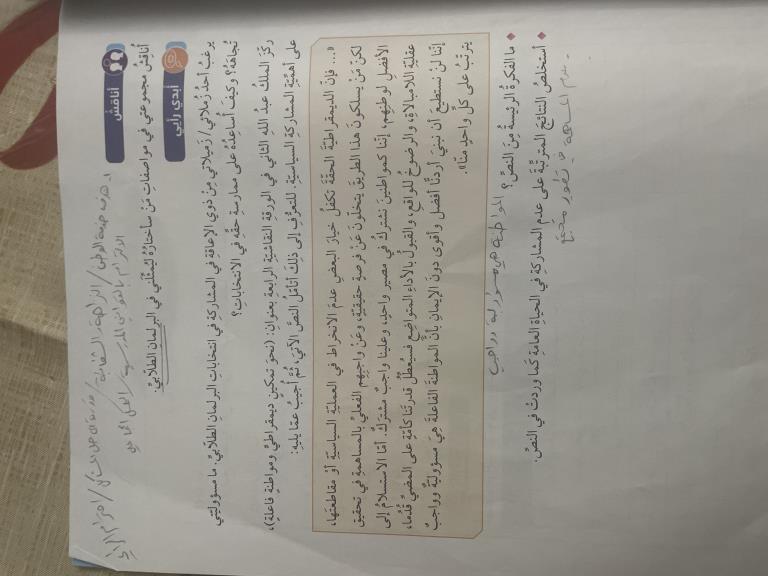 أناقش
أناقش مجموعتي في مواصفات من سأختاره ليمثلني في البرلمان الطلابي.
أبدي رأيي
يرغب أحد زملائي/ زميلاتي من ذوي الإعاقة في المشاركة في انتخابات البرلمان الطلابي. ما مسؤوليتي
تجاهه؟ وكيف أساعده على ممارسة حقه في الانتخابات؟
ركز الملك عبد الله الثاني في الورقة النقاشية الرابعة بعنوان: (نحو تمكين ديمقراطي ومواطنة فاعلة)،
على أهمية المشاركة السياسية. للتعرف إلى ذلك أتأمل النص الآتي، ثم أجيب عما يليه:
«... فإن الديمقراطية الحقة تكفل خيار البعض عدم الانخراط في العملية السياسية أو مقاطعتها،
لكن من يسلكون هذا الطريق يتخلون عن فرصة حقيقية، وعن واجبهم الفعلي بالمساهمة في تحقيق
الأفضل لوطنهم، إننا كمواطنين نشترك في مصير واحد، وعلينا واجب مشترك. أما الاستسلام إلى
عقلية اللامبالاة، والرضوخ للواقع، والقبول بالأداء المتواضع فسيعطل قدرتنا كأمة على المضي قدما،
إننا لن نستطيع أن نبني أردننا أفضل وأقوى دون الإيمان بأن المواطنة الفاعلة هي مسؤولية وواجب
يترتب على كل واحد منا».
ما الفكرة الرئيسة من النص؟
المواطنة هي مسؤولية وواجب
أستخلص النتائج المترتبة على عدم المشاركة في الحياة العامة كما وردت في النص.